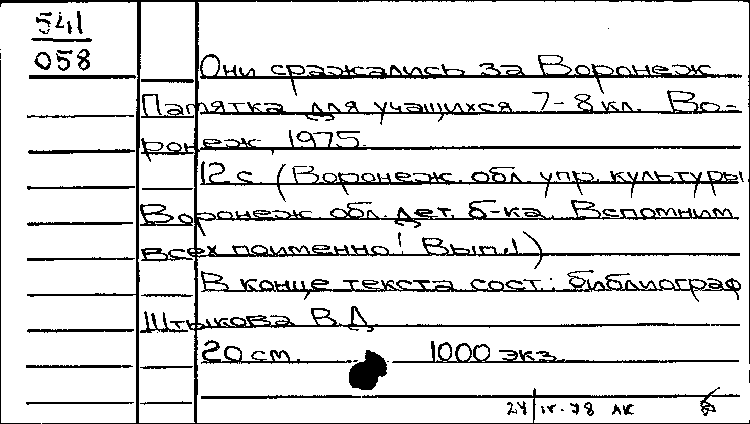 541
058
Они сражались за Воронеж
Памятка для учащихся 7-8 кл. Во-
ронеж, 1975.
12 с. (Воронеж. обл. упр. культуры
Воронеж. обл. дет. б-ка. Вспомним
всех поименно! Вып.1)
В конце текста сост.: библиограф
Штыкова В.Д.
20 см. 1000 экз.
24/IV-78 АК